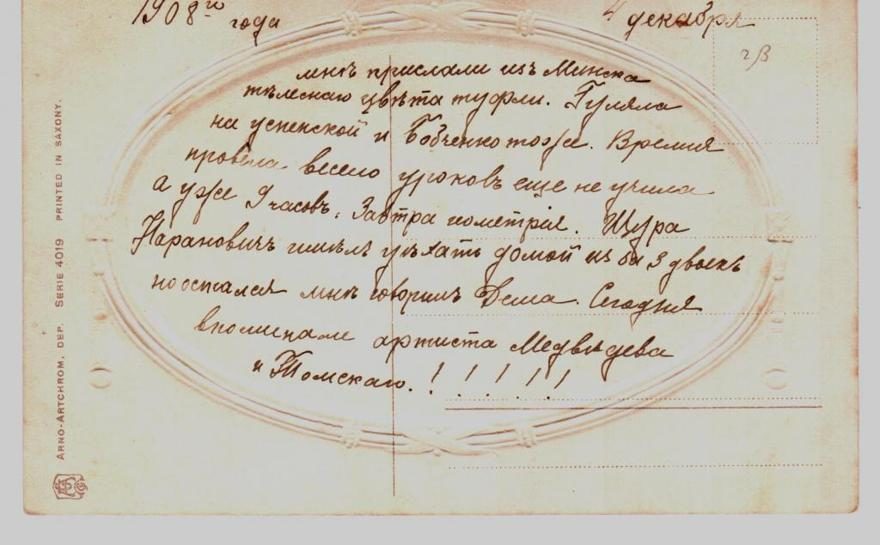 1908го года
4 декабря
2/3
мнѣ прислали изъ Минска
тѣлеснаго цвѣта туфли. Гуляла
на успенской и Бобченко тоже. Время
провела весело уроковъ еще не учила
а уже 9 часовъ. Завтра геометрія. Щура
Наранович уѣхать домой из за 3 двоекъ
но остался мнѣ говорилъ Деша. Сегодня
вспоминали артиста Медвѣдева
и Томскаго. ! ! ! ! ! !
ARNO-ARTCHROM, DEP. SERIE 4019 PRINTED IN SAXONY.